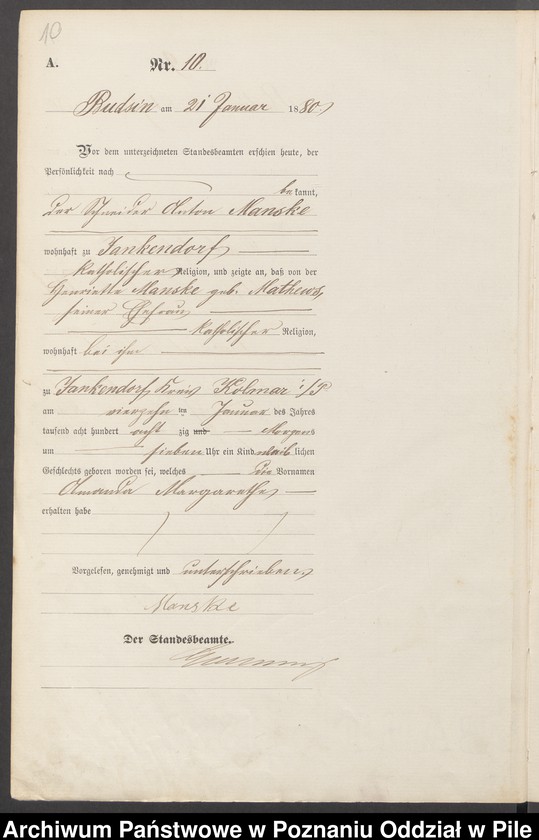 10
A.
Nr. 10.
Budsin am 21 Januar 1880
Vor dem unterzeichneten Standesbeamten erschien heute, der
Persönlichkeit nach
bekannt,
der Schneider Anton Manske
wohnhaft zu Jankendorf
katholischer Religion, und zeigte an, daß von der
Henriette Manske geb. Mathews,
seiner Ehefrau
katholischer Religion,
wohnhaft bei ihm
zu Jankendorf, Kreis Kolmar i/P
am vierzehn ten Januar des Jahres
tausend acht hundert acht zig und Morgens
um sieben Uhr ein Kind weiblichen
Geschlechts geboren worden sei, welches die Vornamen
Amanda Margarethe
erhalten habe
Vorgelesen, genehmigt und unterschrieben.
Manske
Der Standesbeamte.
Archiwum Państwowe w Poznaniu Oddział w Pile